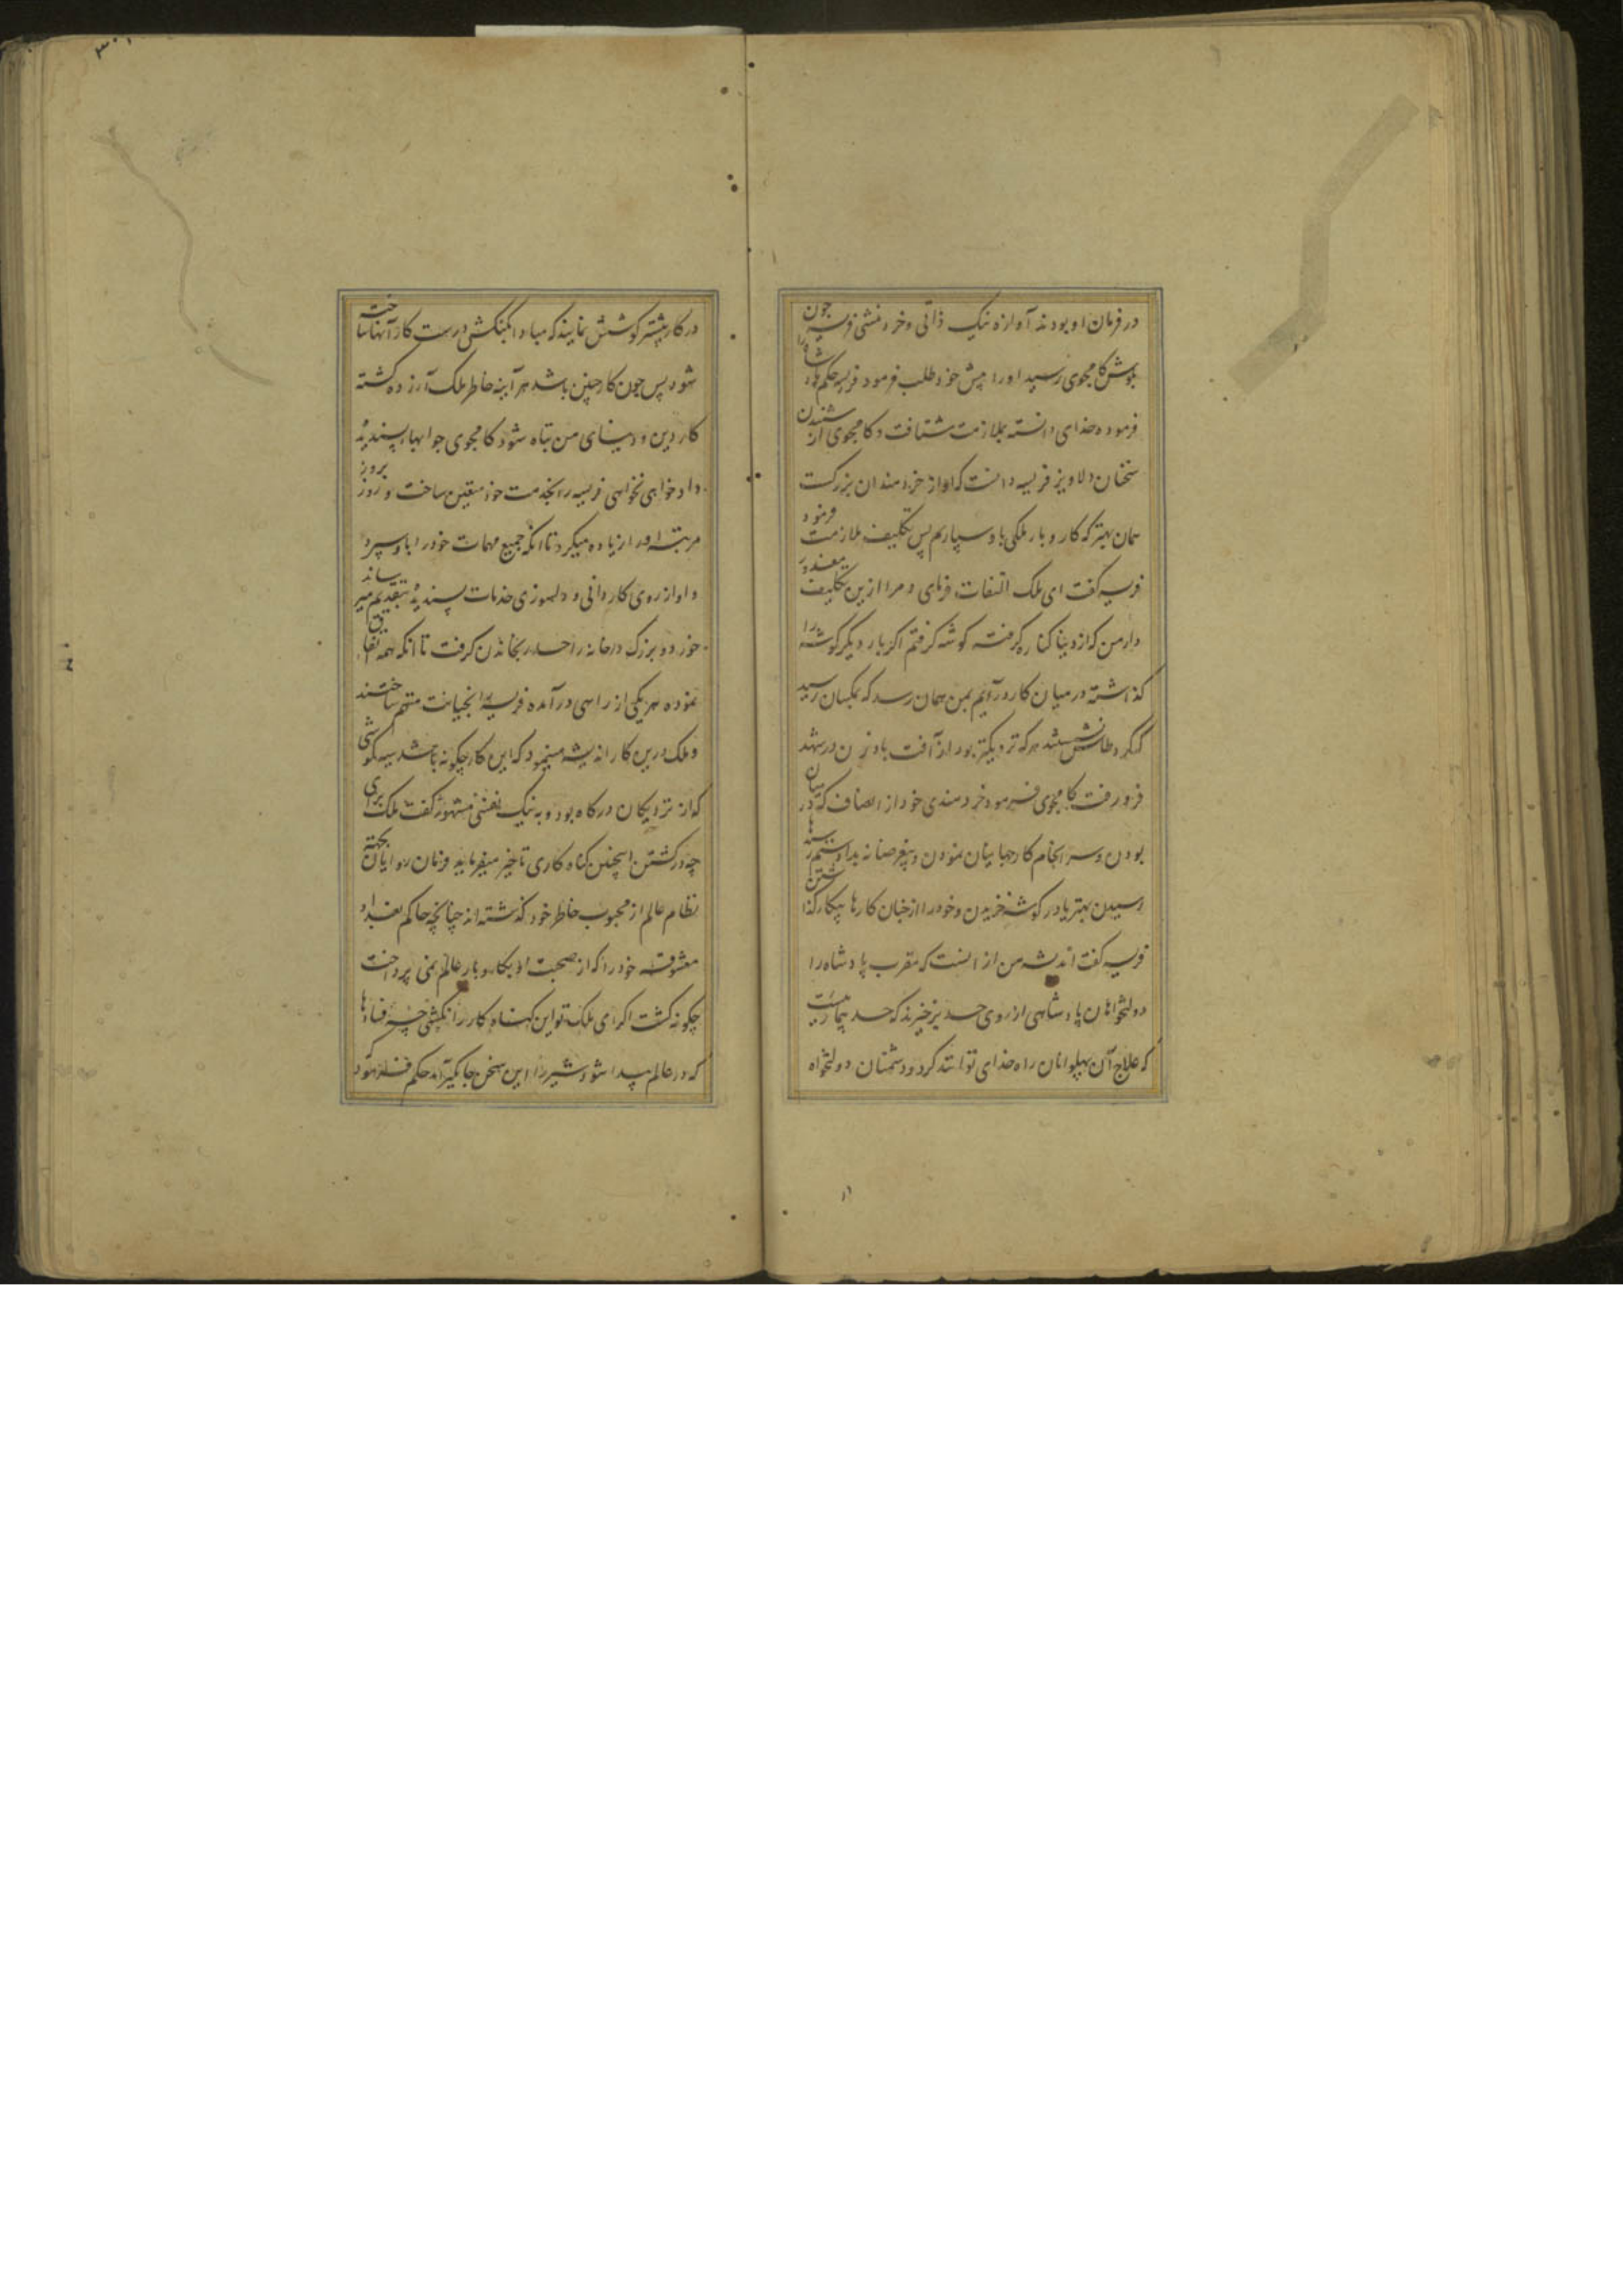 در فرمان او بودند آوازه نیک ذاتی و خرد منشی فریسه چون
بگوش کامجوی رسید اورا پیش خود طلب فرمود فریسه حکم پادشاه را
فرموده خدای دانسته بملازمت شتافت و کامجوی از شنیدن
سخنان دلاویز فریسه دانست که او از خردمندان بزرگست
همان بهتر که کار و بار ملکی باو سپارم پس تکلیف ملازمت فرمود
فریسه گفت ای ملک التفات فرمای و مرا ازین تکلیف معذور
دار من که از دنیا کناره گرفته گوشه گرفتم اگر بار دیگر گوشه را
گذاشته در میان کار در آیم بمن همان رسد که بمگسان رسید
که گرد طاس نشستند هر که نزدیکتر بود از آفت بادزن در شهد
فرو رفت کامجوی فرمود خردمندی خود از انصاف که در میان
بودن و سرانجام کار جهانیان نمودن و بیغرضانه بداد ستم رسیدها
رسیدن بهتر یا در گوشه خزیدن و خود را از چنان کارها بیکار گذاشتن
فریسه گفت اندیشه من از انست که مقرب پادشاه را
دولتخواهان پادشاهی از روی حسد برخیزند که حسد بیماریست
که علاج آن پهلوانان راه خدای توانند کرد و دشمنان دولتخواه
در کار بیشتر کوشش نمایند که مبادا بکنکش درست کار آنها ساخته
شود پس چون کار چنین باشد هر آینه خاطر ملک آزرده گشته
کار دین و دنیای من تباه شود کامجوی جوابهای پسندیده
داد خواهی نخواهی فریسه را بخدمت خود متعین ساخت و روز بروز
مرتبه اورا زیاده میکرد تا انکه جمیع مهمات خود را باو سپرد
و او از روی کاردانی و دلسوزی خدمات پسندیده بتقدیم میرساند
خورد و بزرگ درخانه را حسد رنجاندن گرفت تا انکه همه اتفاق
نموده هر یکی از راهی در آمده فریسه را بخیانت متهم ساختند
و ملک درین کار اندیشه مینمود که این کار چگونه باشد سیه گوشی
که از نزدیکان درگاه بود و به نیک نفسی مشهور گفت ملک برای
چه در کشتن اینچنین گناه کاری تاخیر میفرماید فرمان روایان بجهته
نظام عالم از محبوب خاطر خود گذشته اند چنانچه حاکم بغداد
معشوقه خود را که از صحبت او بکار و بار عالم نمی پرداخت
چگونه کشت اگر ای ملک تو این گناه کار را نکشی چه فسادها
که در عالم پیدا شود شیر را این سخن جایگیر آمد حکم فرمود که